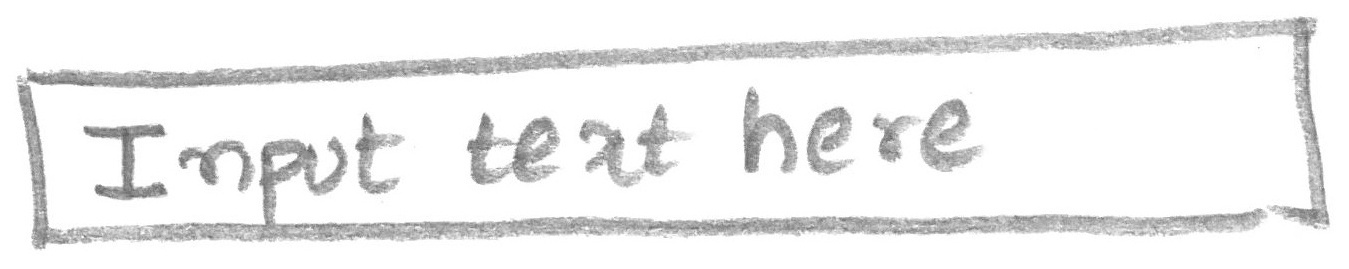 Input text here